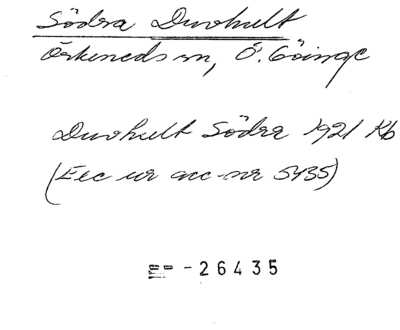 Södra Duvhult
Örkeneds sn, Ö. Göinge
Duvhult Södra 1921 Kb
(Exc ur acc-nr 5435)
-26435